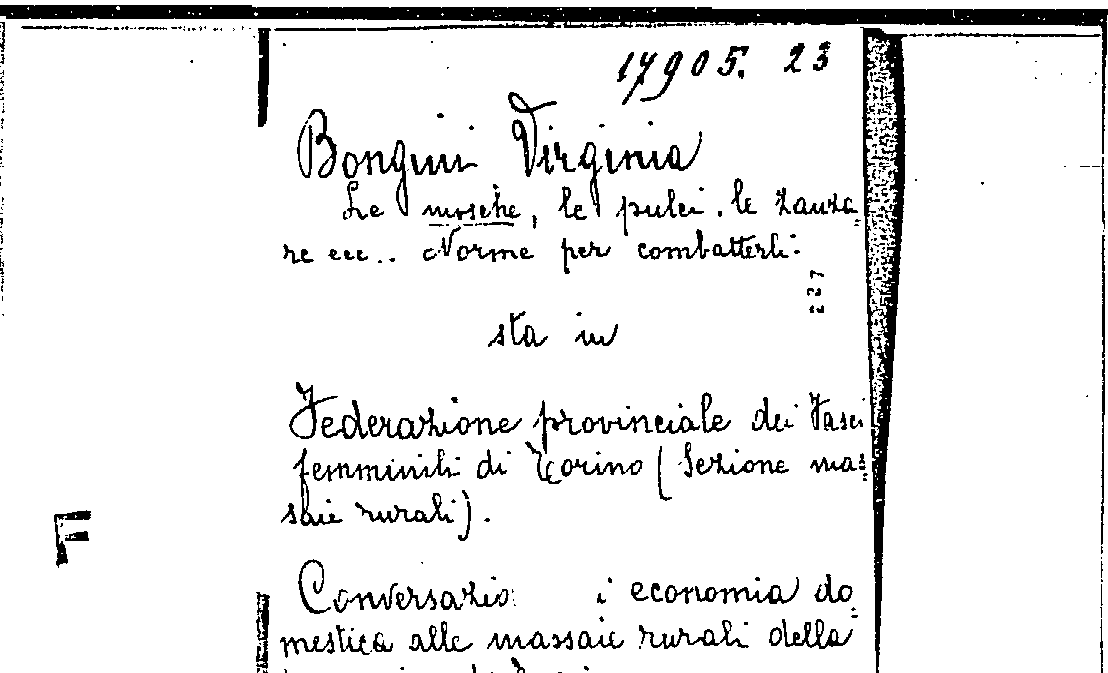 17905. 23
Bongini Virginia
Le mosche, le pulci, le zanza=
re ecc.. Norme per combatterli.
227
sta in
Federazione provinciale dei Fasci
femminili di Torino (Sezione mas=
saie rurali).
F
Conversazio i economia do=
mestica alle massaie rurali della